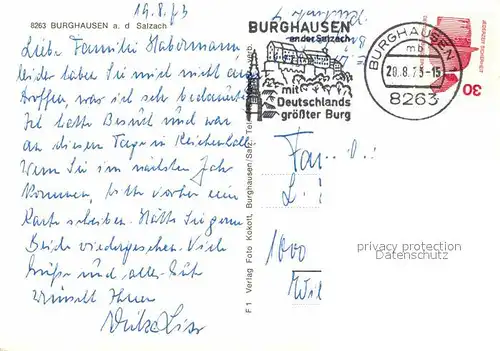 19.8.73
8263 BURGHAUSEN a. d. Salzach
Liebe Familie Habermann
leider haben Sie mich nicht an
troffen, was ich sehr bedaure
Ich hatte Besuch und war
an diesem Tage in Reichenhall
Wenn Sie im nächsten Jahr
kommen, bitte vorher eine
Karte schreiben. Hätte Sie gerne
Beide wiedergesehen. Viele
Grüße und alles Gute
wünscht Ihnen
F 1 Verlag Foto Kokott, Burghausen/Salz. Tel.
BURGHAUSEN
an der Salzach
mit
Deutschlands
größter Burg
BURGHAUSEN
mb
20.8.73-15
8263
30
Fa
L
1000
Wil
privacy protection
Datenschutz